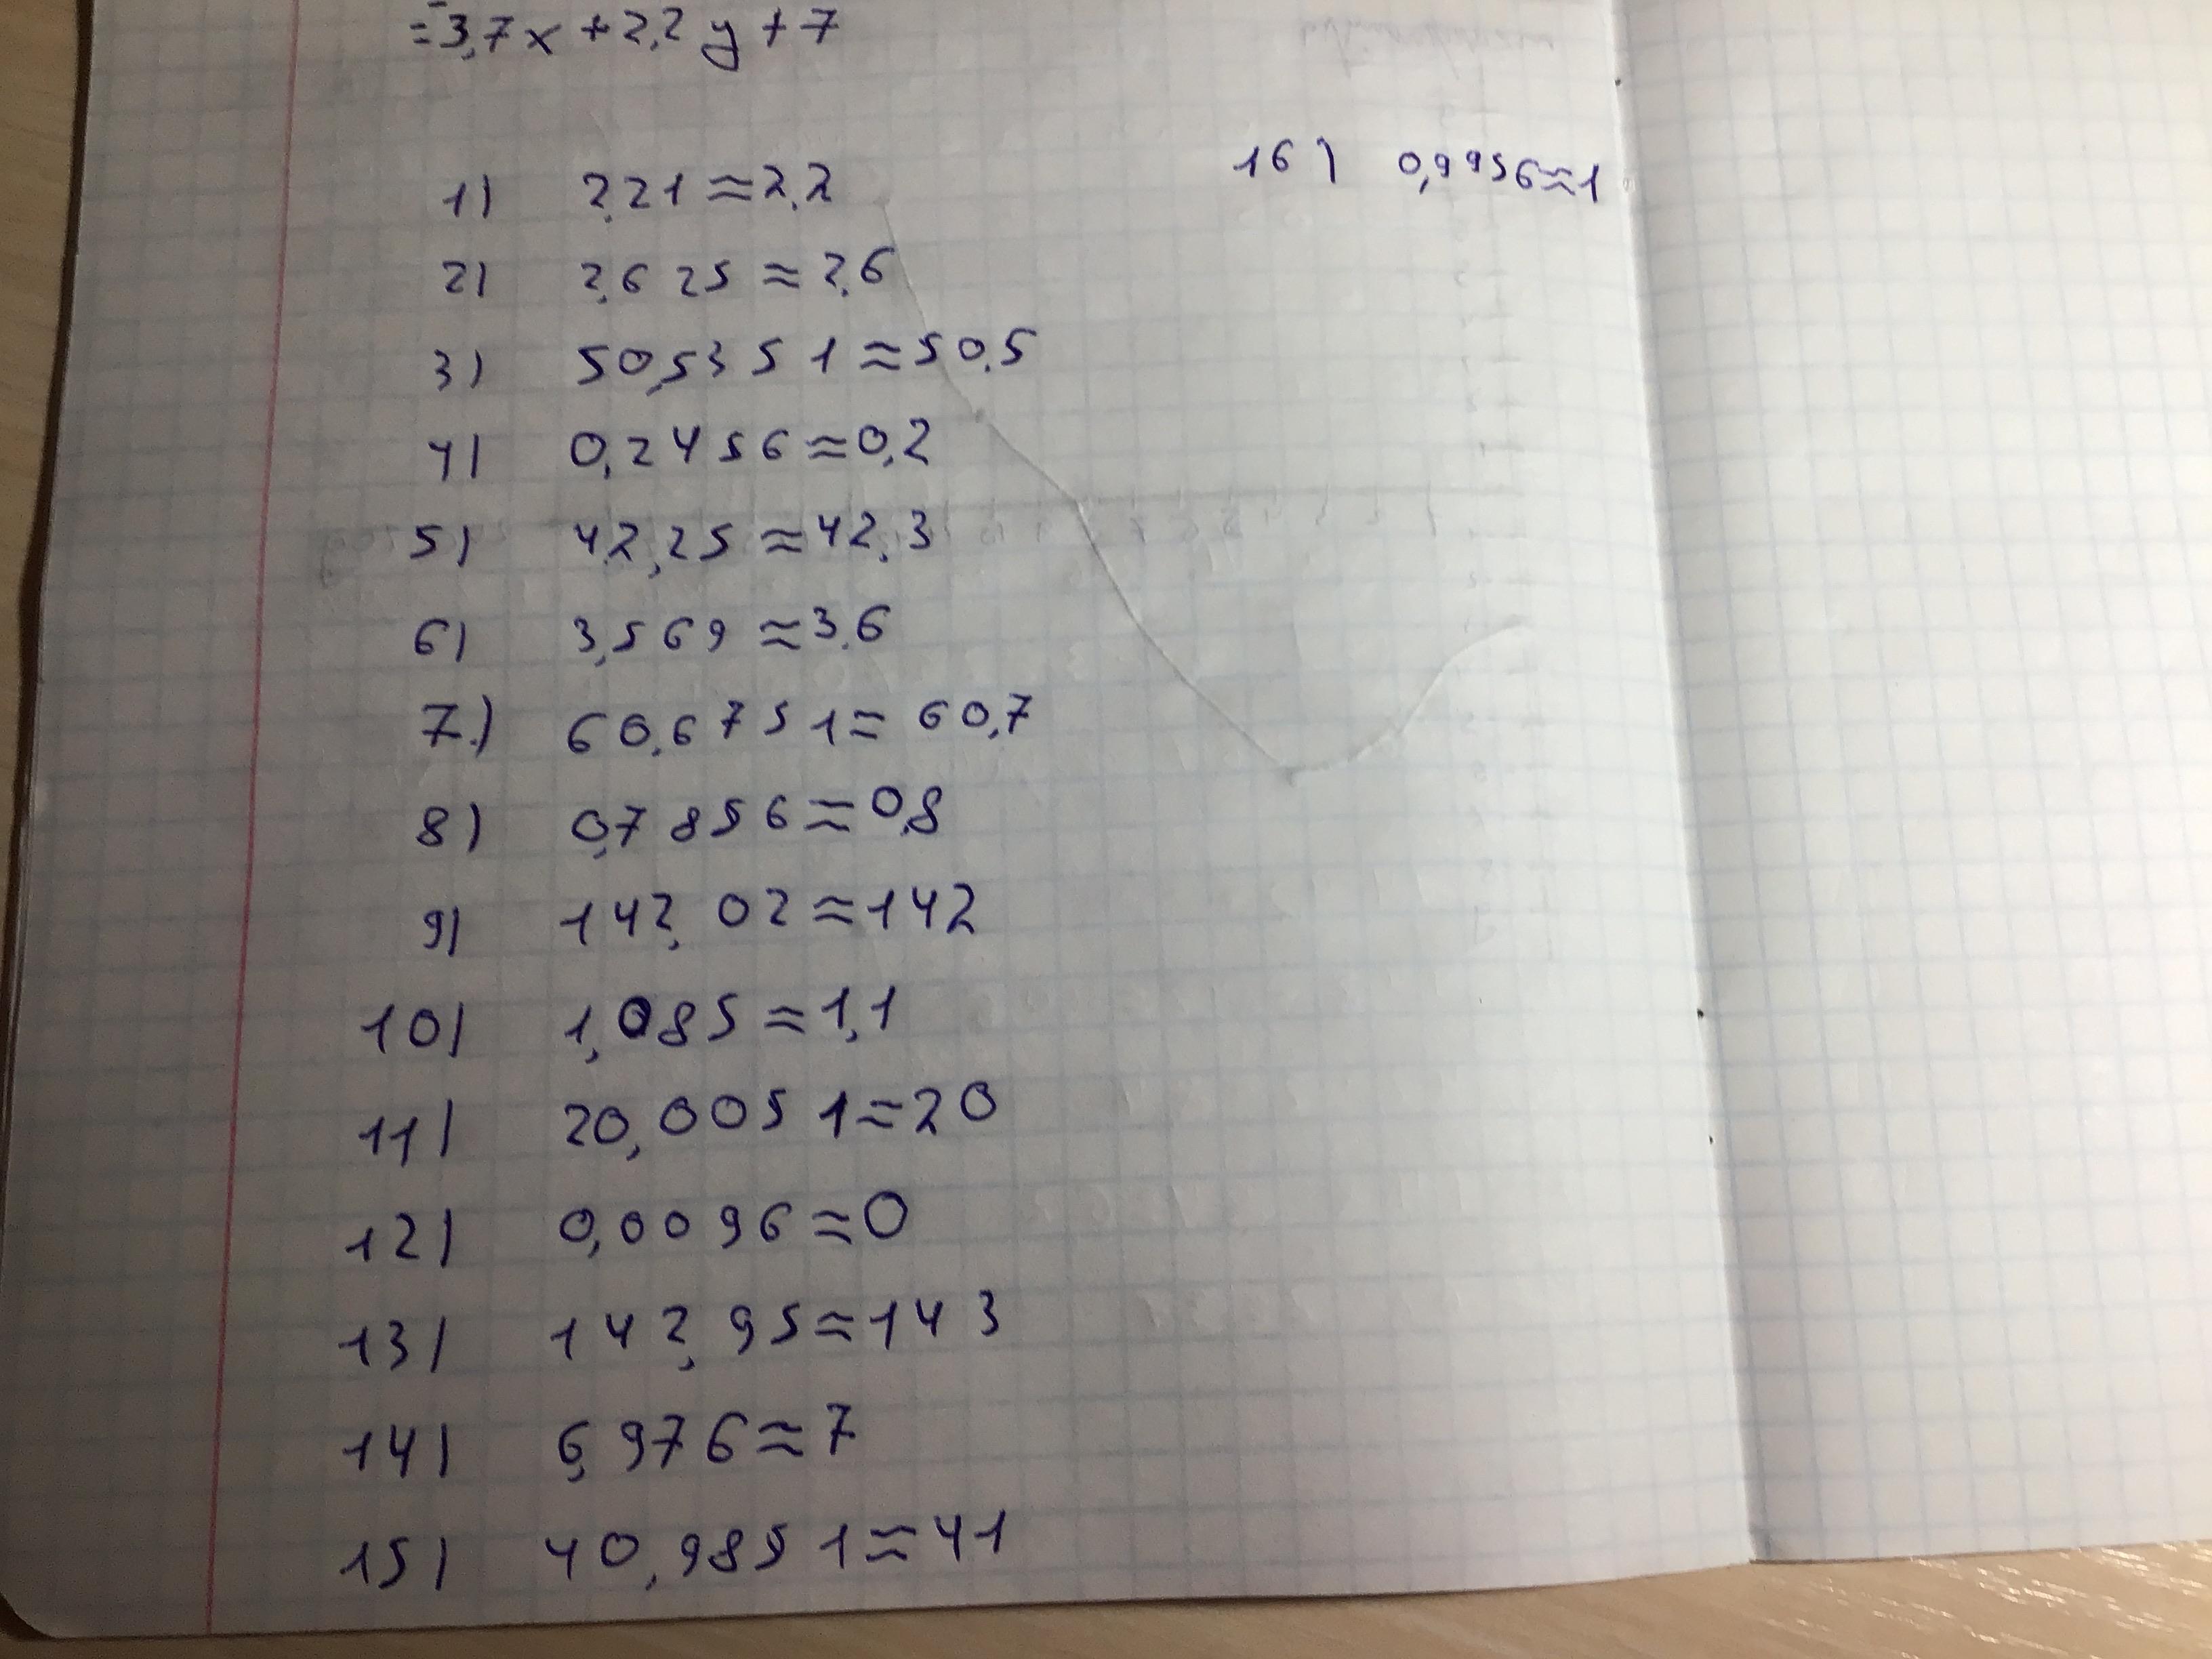 =-3,7x+2,2y+7
1) 2,21≈2,2
2) 2,625≈2,6
3) 50,5351≈50,5
4) 0,2456≈0,2
5) 42,25≈42,3
6) 3,569≈3,6
7) 60,6751≈60,7
8) 0,7856≈0,8
9) 142,02≈142
10) 1,085≈1,1
11) 20,0051≈20
12) 0,0096≈0
13) 142,95≈143
14) 6,976≈7
15) 40,9851≈41
16) 0,9956≈1